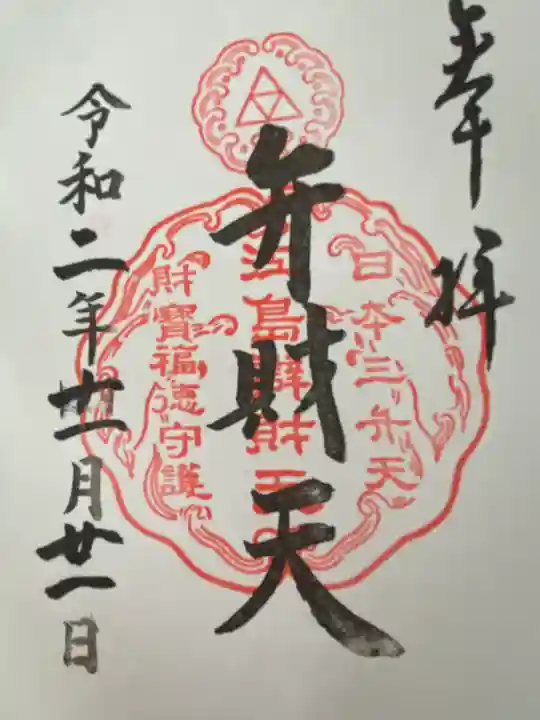 奉拝
日本三弁天
江島辯財天
弁財天
財寶福徳守護
令和二年十一月廿一日